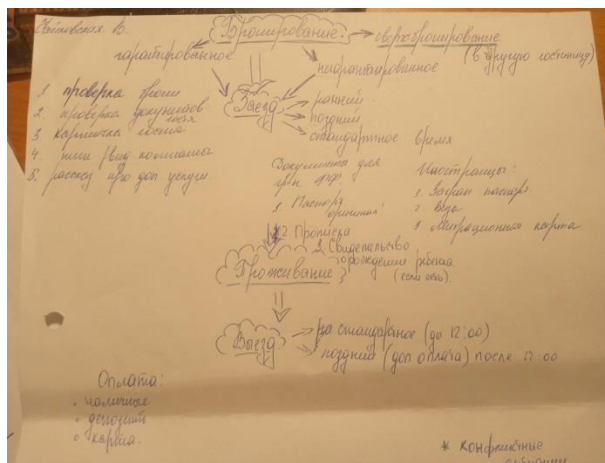 Бронирование → сверхбронирование
(в другую гостиницу)
гарантированное
негарантированное
Заезд
→ ранний
→ поздний
→ стандартное время
1. проверка брони
2. проверка документов гостя
3. карточка гостя
4. тип/вид комнаты
5. рассказ про доп. услуги
Документы для
1. Паспорт "оригинал"
2 Прописка
3. Свидетельство
рождения ребёнка
(если есть)
Иностранцы:
1. Загран паспорт
2. Виза
3. Миграционная карта
Проживание
Выезд
→ стандартное (до 12:00)
→ поздний (доп оплата) после 12:00
Оплата:
• наличные
• депозит
• карта.
* конфликтные